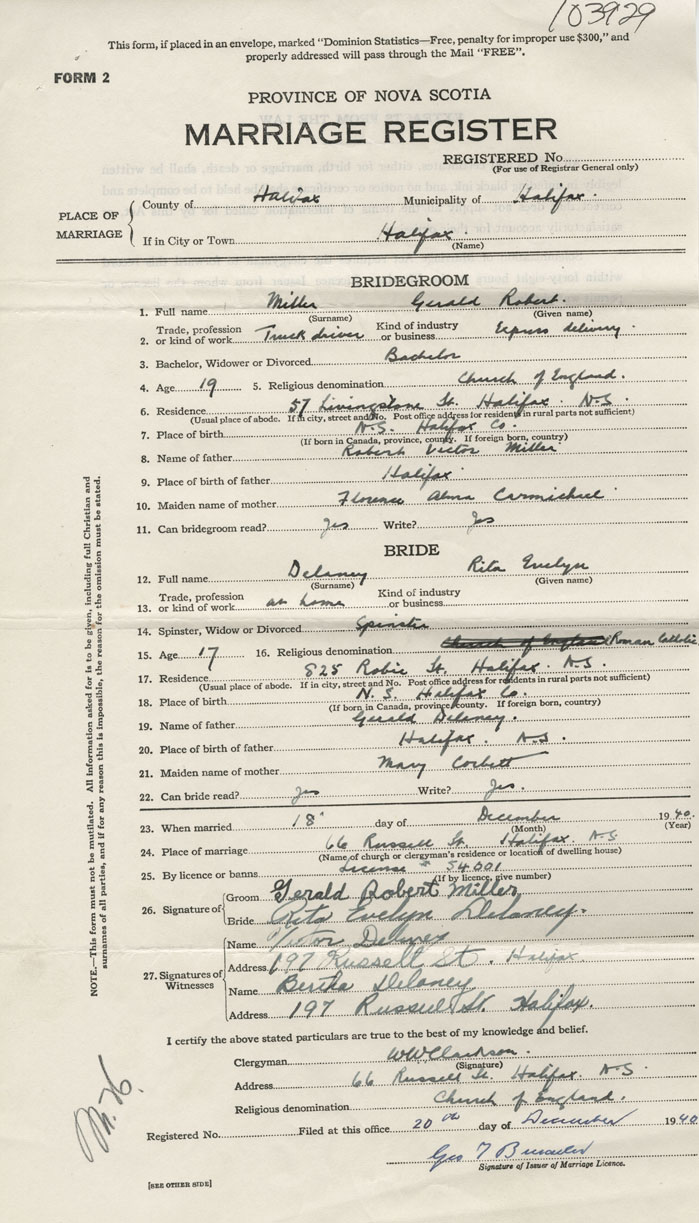 103929
This form, if placed in an envelope, marked "Dominion Statistics—Free, penalty for improper use $300," and
properly addressed will pass through the Mail "FREE".
FORM 2
PROVINCE OF NOVA SCOTIA
MARRIAGE REGISTER
REGISTERED No.
(For use of Registrar General only)
PLACE OF MARRIAGE
County of Halifax Municipality of Halifax.
If in City or Town Halifax.
(Name)
BRIDEGROOM
1. Full name Miller Gerald Robert.
(Surname) (Given name)
2. Trade, profession or kind of work Truck driver Kind of industry or business. Express delivery.
3. Bachelor, Widower or Divorced Bachelor
4. Age 19 5. Religious denomination Church of England.
6. Residence 57 Livingstone St. Halifax. N.S.
(Usual place of abode. If in city, street and No. Post office address for residents in rural parts not sufficient)
7. Place of birth N.S. Halifax Co.
(If born in Canada, province, county. If foreign born, country)
8. Name of father Robert Victor Miller
9. Place of birth of father Halifax.
10. Maiden name of mother Florence Alma Carmichael
11. Can bridegroom read? Yes Write? Yes
BRIDE
12. Full name Delaney Rita Evelyn
(Surname) (Given name)
13. Trade, profession or kind of work at home Kind of industry or business
14. Spinster, Widow or Divorced Spinster
15. Age 17 16. Religious denomination Church of England Roman Catholic
17. Residence 825 Robie St. Halifax. N.S.
(Usual place of abode. If in city, street and No. Post office address for residents in rural parts not sufficient)
18. Place of birth N.S. Halifax Co.
(If born in Canada, province/county. If foreign born, country)
19. Name of father Gerald Delaney.
20. Place of birth of father Halifax. N.S.
21. Maiden name of mother Mary Corbett
22. Can bride read? Yes Write? Yes.
23. When married 18" day of December 1940.
(Month) (Year)
24. Place of marriage 66 Russell St. Halifax. N.S
(Name of church or clergyman's residence or location of dwelling house)
25. By licence or banns License # 54001
(If by licence, give number)
26. Signature of Groom Gerald Robert Miller,
Bride Rita Evelyn Delaney.
27. Signatures of Witnesses
Name
Address 197 Russell St. Halifax
Name Bertha Delaney
Address 197 Russell St. Halifax.
I certify the above stated particulars are true to the best of my knowledge and belief.
Clergyman WWClarkson.
(Signature)
Address 66 Russell St. Halifax. N.S.
Religious denomination Church of England.
Registered No. Filed at this office 20th day of December 1940
Geo
Signature of Issuer of Marriage Licence.
[SEE OTHER SIDE]
NOTE.—This form must not be mutilated. All information asked for is to be given, including full Christian and
surnames of all parties, and if for any reason this is impossible, the reason for the omission must be stated.